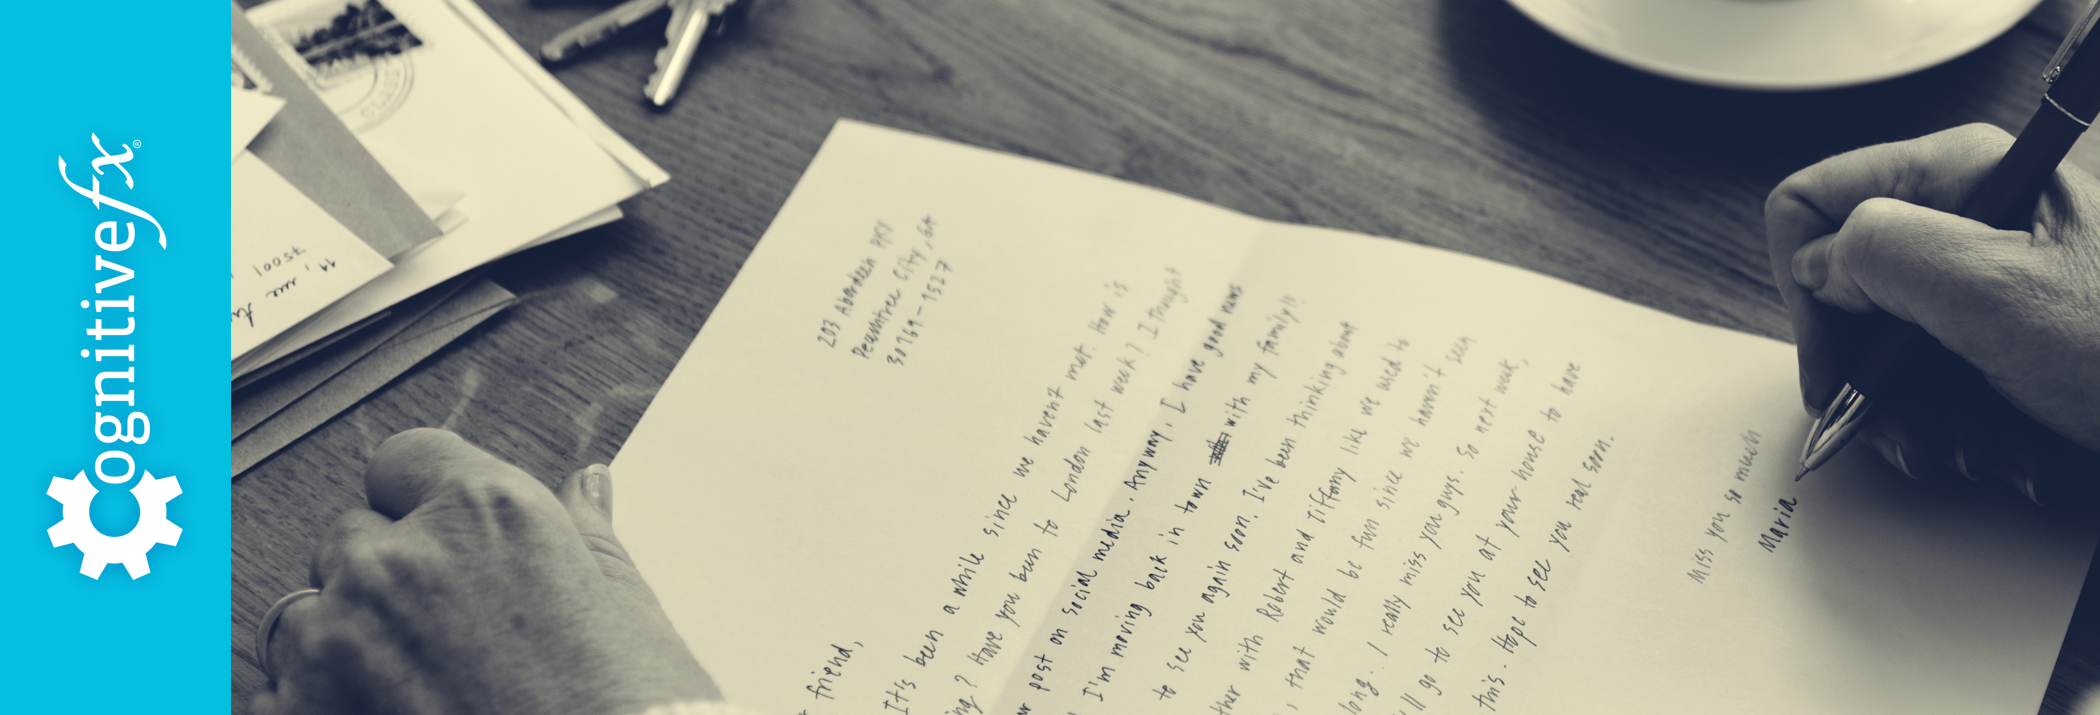 Cognitivefx®
CLASS
11, rue
75001
203 Aberdeen PKY
Peachtree City, GA
30269-1527
friend,
It's been a while since we havent met. How is
ing? Have you been to London last week? I thought
ur post on social media. Anyway, I have good news
I'm moving back in town with my family!!
to see you again soon. I've been thinking about
ther with Robert and Tiffany like we used to
, that would be fun since we haven't seen
long. I really miss you guys. So next week,
'll go to see you at your house to have
this. Hope to see you real soon.
Miss you so much
Maria